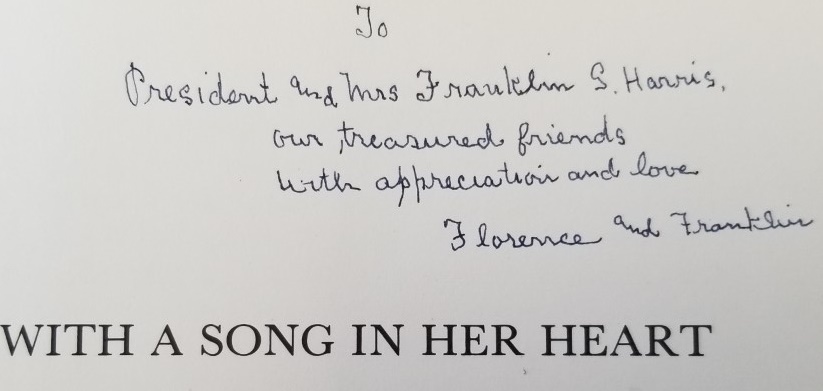 To
President and Mrs Franklin S. Harris,
our treasured friends
with appreciation and love
Florence and Franklin
WITH A SONG IN HER HEART